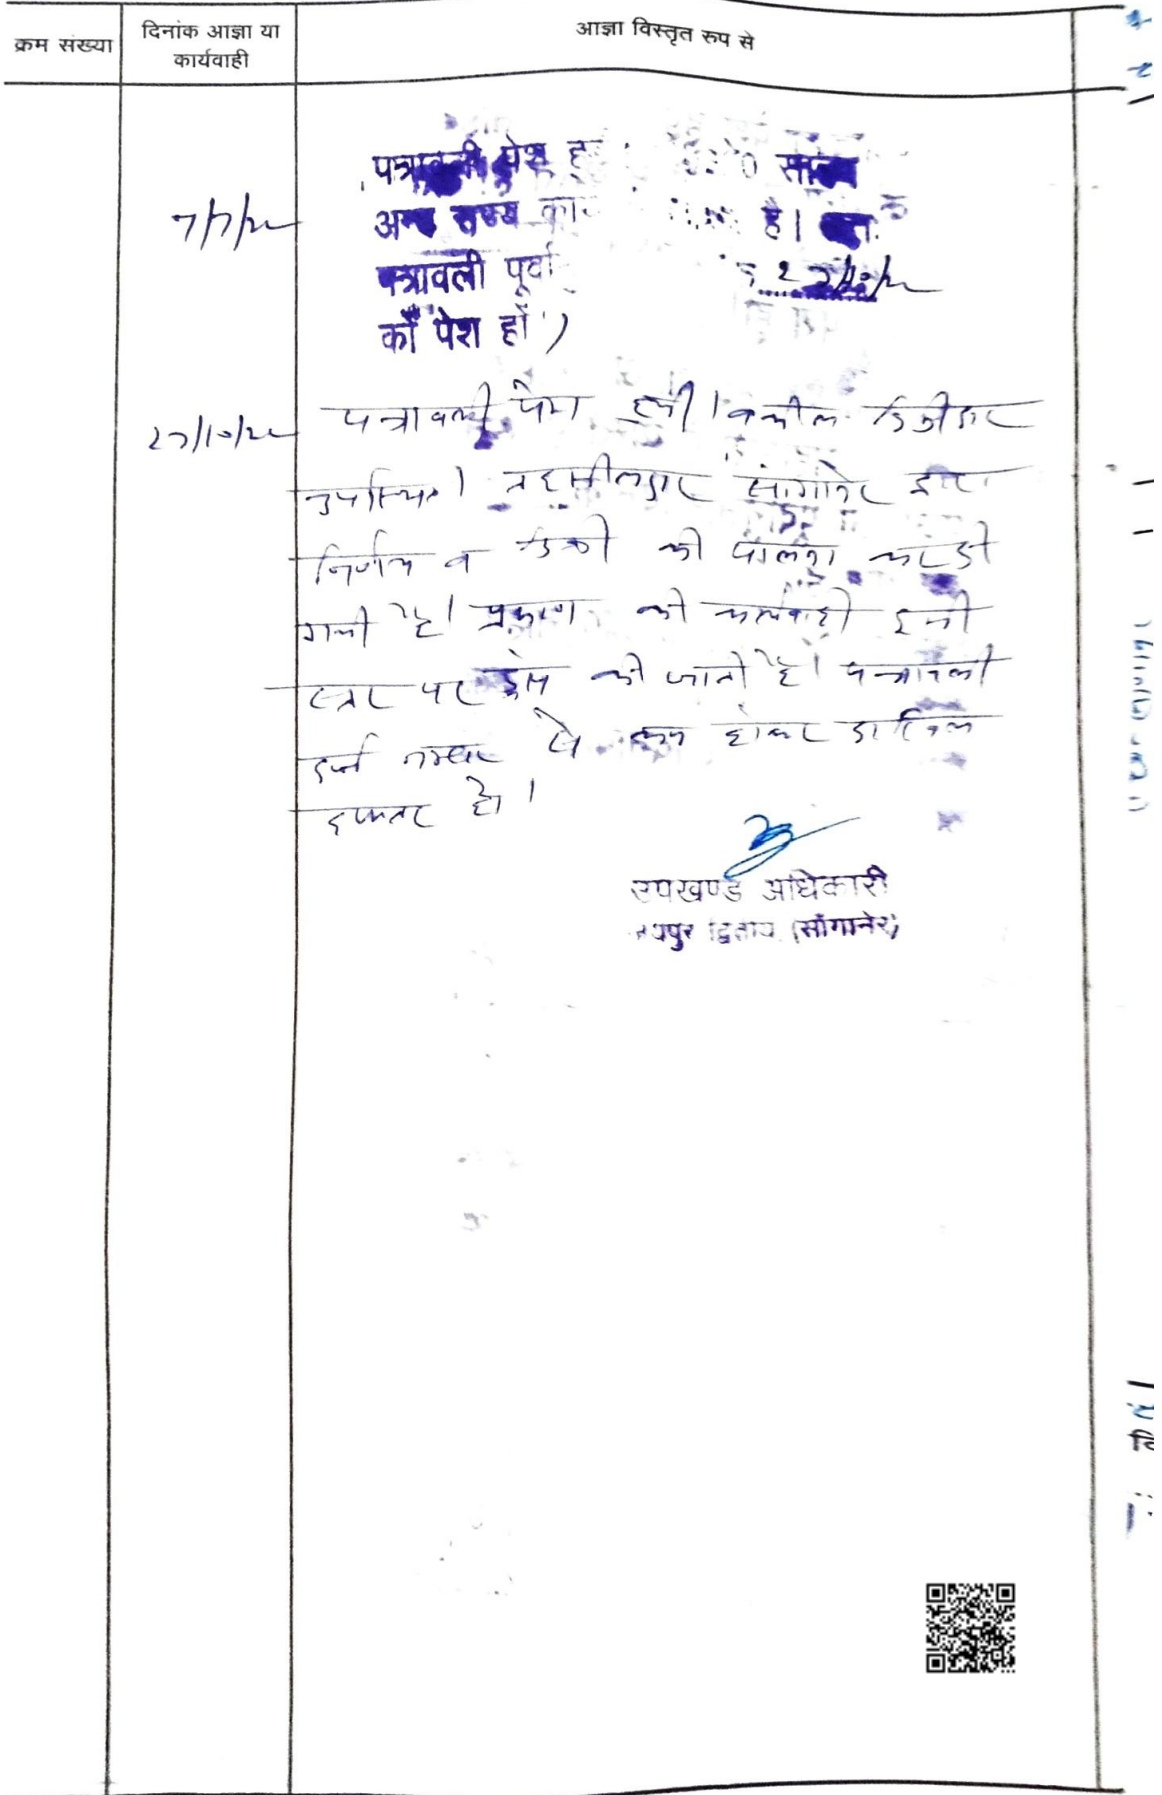 क्रम संख्या
दिनांक आज्ञा या
कार्यवाही
आज्ञा विस्तृत रुप से
7/7/22
पत्रावली पेश
है।
पत्रावली पूर्वा
को पेश हो
27/10/22
पत्रावली पेश हुयी। वकील डिक्रीदार
उपस्थित। तहसीलदार सांगानेर द्वारा
निर्णय व डिक्री की पालना कर दी
गयी है। प्रकरण की कार्यवाही इसी
स्तर पर ड्रोप की जाती है। पत्रावली
दर्ज नम्बर से कम होकर दाखिल
दफ्तर हो।
उपखण्ड अधिकारी
(सांगानेर)